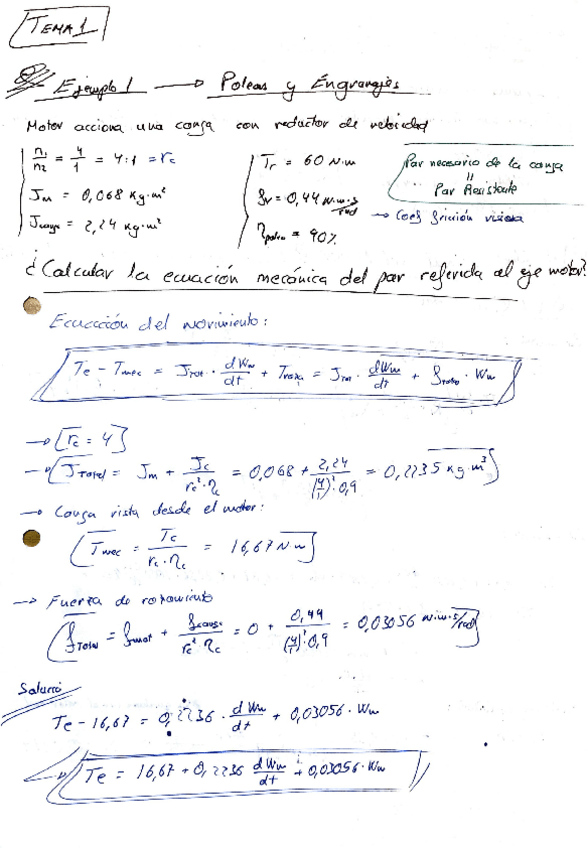 TEMA 1
Ejemplo 1 → Poleas y Engranajes
Motor acciona una carga con reductor de velocidad
n₁/n₂ = 4/1 = 4:1 = rc
Jm = 0,068 Kg·m²
Jcarga = 2,24 Kg·m²
Tr = 60 N·m
ρr = 0,44 N·m·s/rad → Coef fricción viscosa
ηpolea = 90%
Par necesario de la carga
=
Par Resistente
¿Calcular la ecuación mecánica del par referida al eje motor?
Ecuacción del movimiento:
Te - Tmec = JTot · dWm/dt + Troza = JTot · dWm/dt + ρtotal · Wm
→ rc = 4
→ JTotal = Jm + Jc/rc²·ηc = 0,068 + 2,24/(4/1)²·0,9 = 0,2235 Kg·m³
→ Carga vista desde el motor:
Tmec = Tc/rc·ηc = 16,67 N·m
→ Fuerza de rozamiento
ρTotal = ρmot + ρcarga/rc²·ηc = 0 + 0,44/(4/1)²·0,9 = 0,03056 N·m·s/rad
Solució
Te - 16,67 = 0,2236 · dWm/dt + 0,03056 · Wm
→ Te = 16,67 + 0,2236 dWm/dt + 0,03056 · Wm